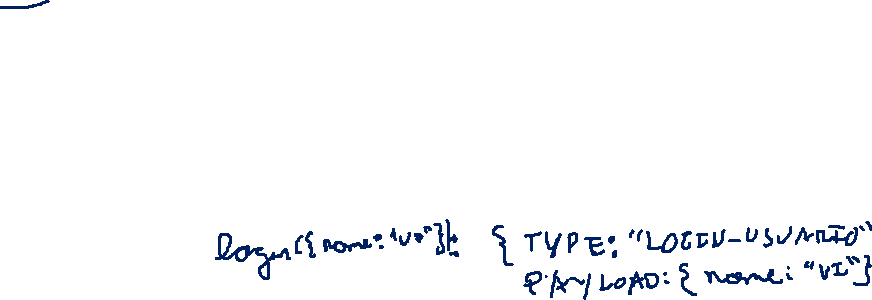 login({nome: "VI"}): { TYPE: "LOGIN-USUARIO"
PAYLOAD: { nome: "VI"}